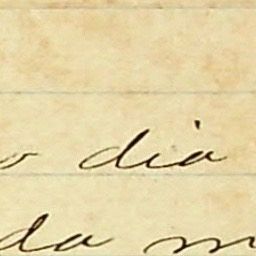 o dia
da m